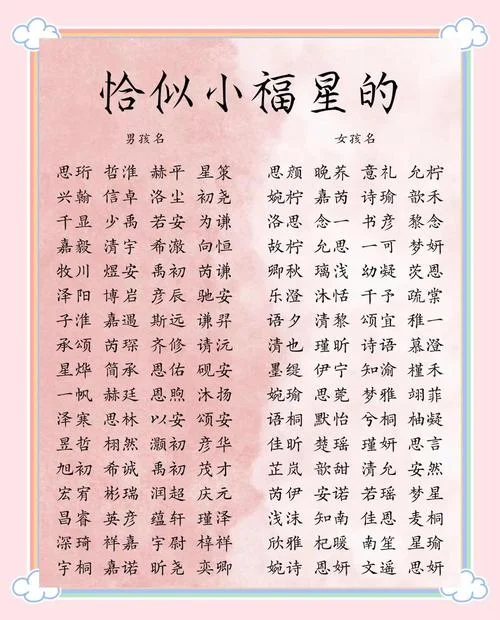 恰似小福星的
男孩名 女孩名
思珩 哲淮 赫平 星策 思颜 晚荞 意礼 允柠
兴翰 信卓 洛尘 初尧 婉柠 嘉芮 诗瑜 歆禾
千显 少禹 若安 为谦 洛思 念一 书彦 黎念
嘉毅 清宇 希澈 向恒 故柠 允思 一可 梦妍
牧川 煜安 禹初 芮谦 卿秋 璃浅 幼凝 茨恩
泽阳 博岩 彦辰 驰安 乐澄 沐恬 千予 疏棠
子淮 嘉遇 斯远 谦羿 语夕 清黎 颂宜 稚一
承颂 芮琛 齐修 请沅 清也 瑾昕 诗语 慕澄
星烨 简承 思佑 砚安 墨缇 伊宁 知渝 槿禾
一帆 赫廷 思煦 沐扬 婉瑜 思菀 梦雅 翊菲
泽寒 思林 以安 颂安 语桐 默怡 兮桐 柚凝
昱哲 栩然 灏初 彦华 佳昕 楚瑶 瑾妍 思言
旭初 希诚 禹初 茂才 芷岚 歆甜 清允 安然
宏宥 彬瑞 润超 庆元 芮伊 安诺 若瑶 梦星
昌睿 英彦 蕴轩 瑾泽 浅沫 知南 佳思 麦桐
深琦 祥嘉 宇尉 梓祥 欣雅 杞暖 南笙 星瑜
宇桐 嘉诺 昕尧 奕卿 婉诗 思妍 文遥 思妍